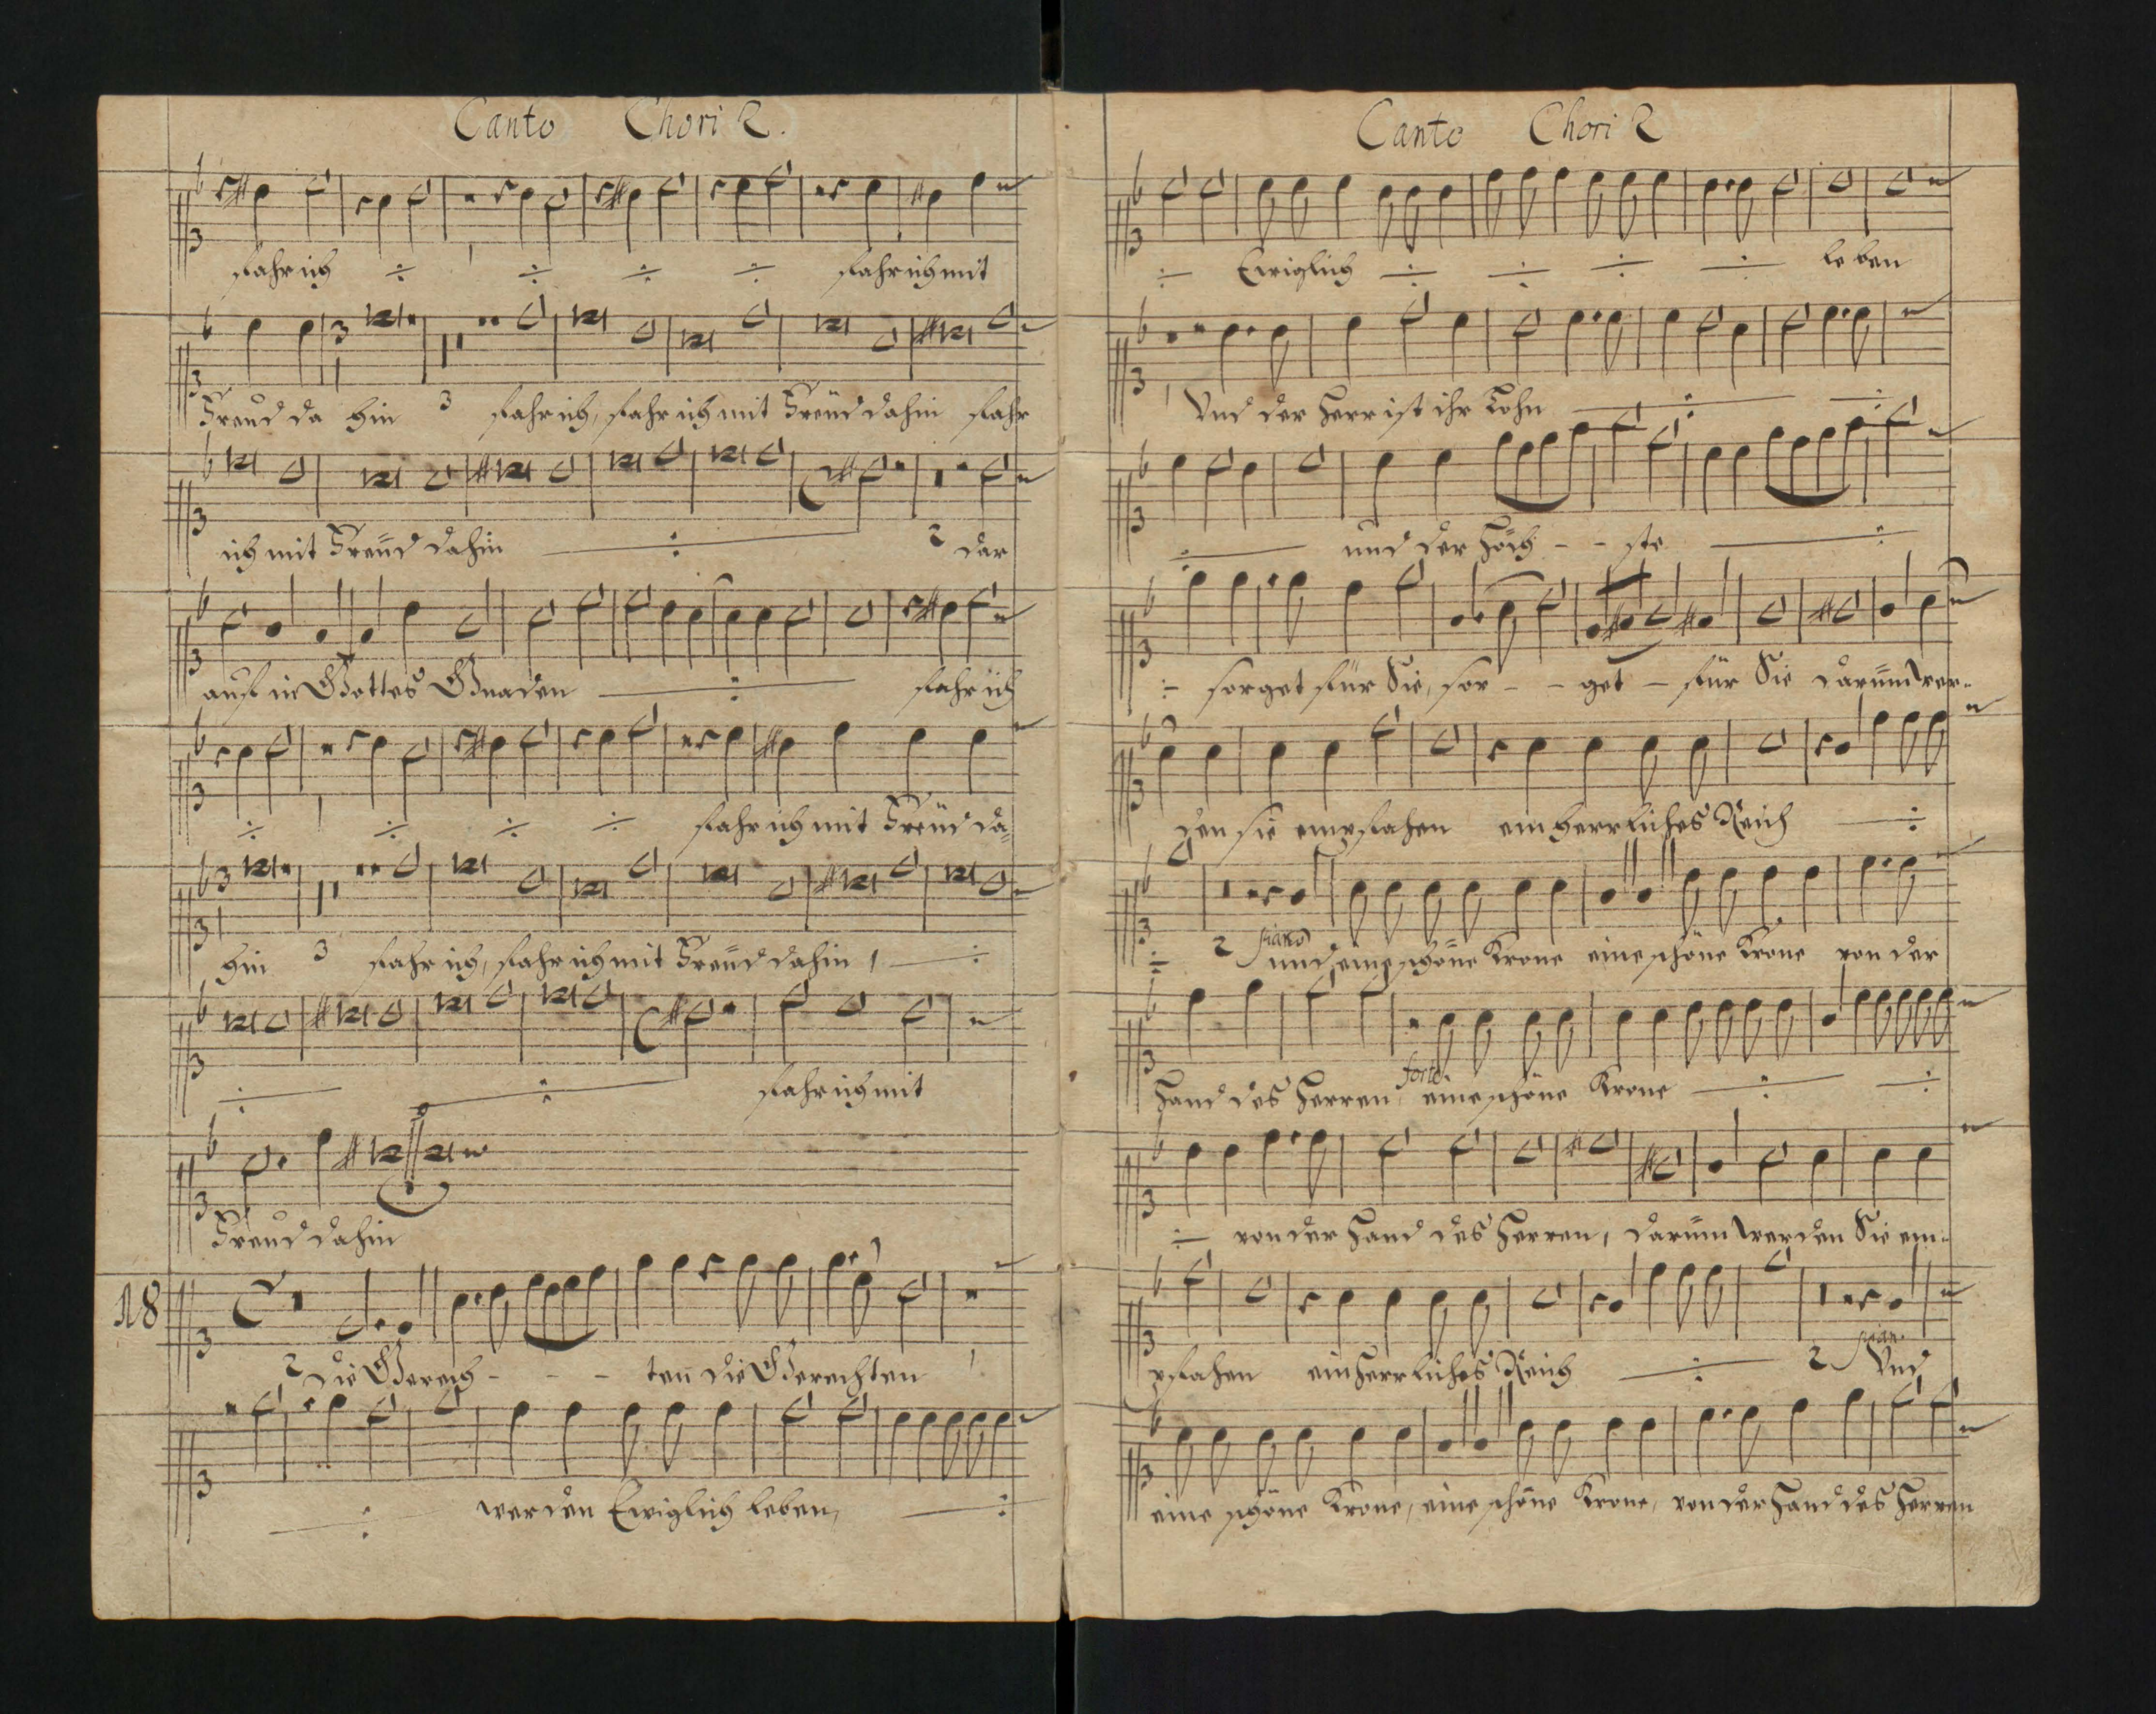 Canto Chori 2.
fahr ich fahr ich mit
Freud da hin 3 fahr ich, fahr ich mit Freud dahin fahr
ich mit Freud dahin 2 dar
auf in Gottes Gnaden fahr ich
fahr ich mit Freud da=
hin 3 fahr ich, fahr ich mit Freud dahin,
fahr ich mit
Freud dahin
18
2 die Gerech - - - ten die Gerechten
werden Ewiglich leben,
Canto Chori 2
Ewiglich leben
Vnd der Herr ist ihr Lohn
und der Höch - - ste
sorget für Sie, sor - - get - für Sie darum wer=
den sie empfahen ein herrliches Reich
2 piano und eine schöne Krone eine schöne Krone von der
Hand des Herren, forte eine schöne Krone
von der Hand des Herren, darum werden Sie em=
pfahen ein Herrliches Reich 2 pian. Vnd
eine schöne Krone, eine schöne Krone, von der Hand des Herren